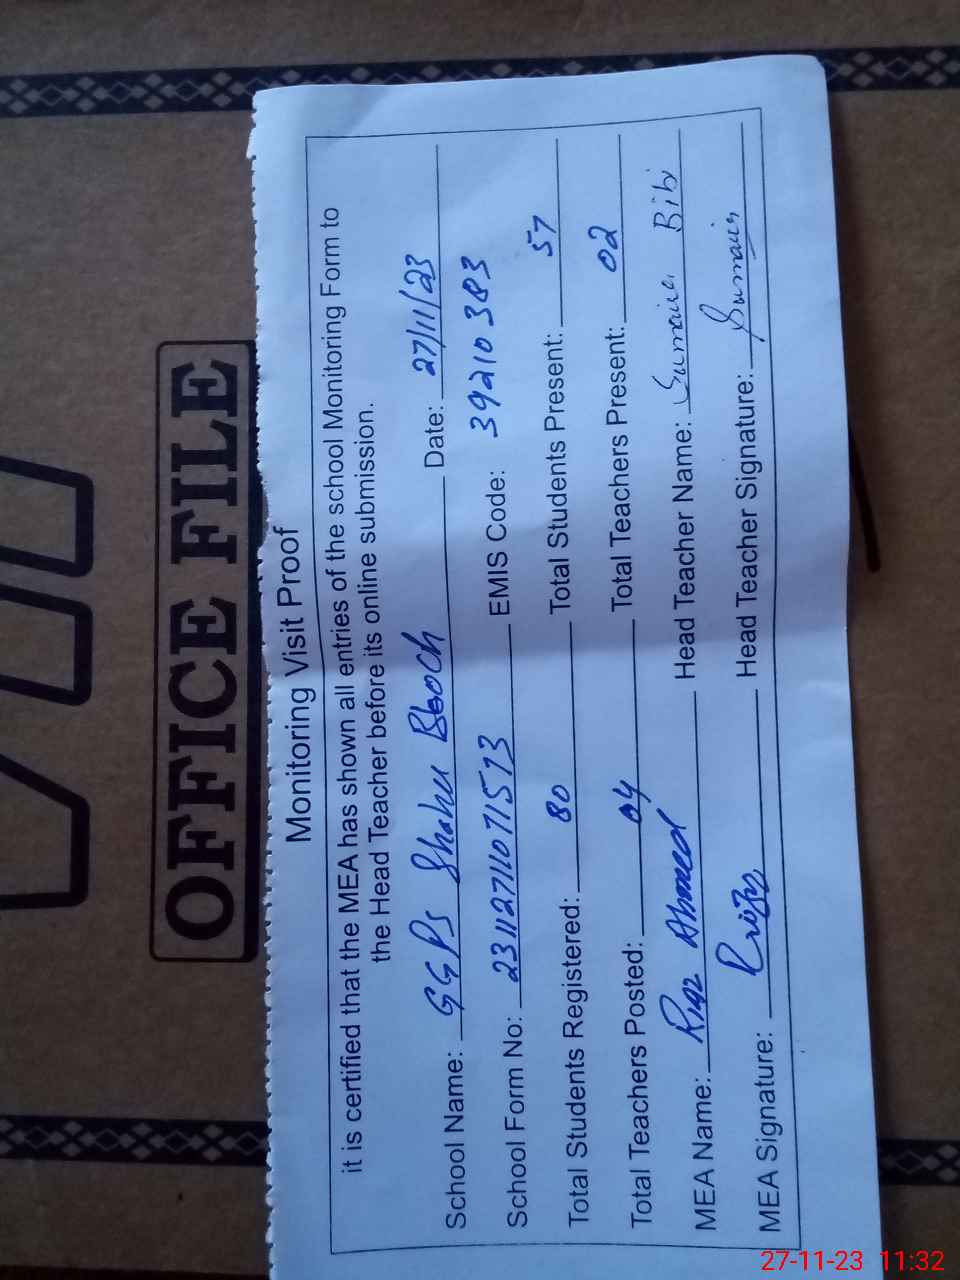 OFFICE FILE
Monitoring Visit Proof
it is certified that the MEA has shown all entries of the school Monitoring Form to
the Head Teacher before its online submission.
School Name: GGPS Shahu Bloch Date: 27/11/23
School Form No: EMIS Code: 39210383
Total Students Registered: 80 Total Students Present: 57
Total Teachers Posted: 04 Total Teachers Present: 02
MEA Name: Riaz Ahmed Head Teacher Name: Sumaira Bibi
MEA Signature: Head Teacher Signature:
27-11-23 11:32